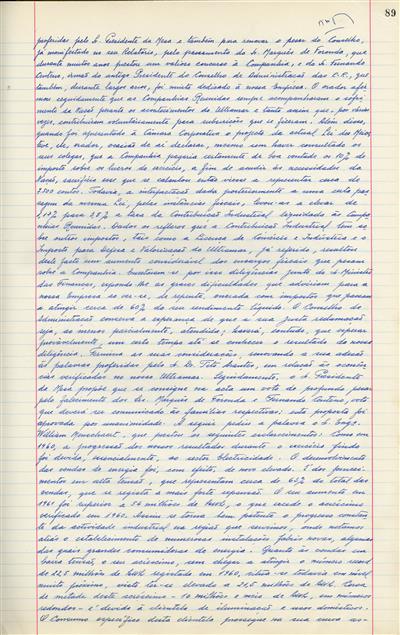 89
proferidas pelo Sr. Presidente da Mesa e também para renovar o pesar do Conselho,
já manifestado no seu Relatório, pelo passamento do Sr. Marquês de Foronda, que
durante muitos anos prestou um valioso concurso à Companhia, e do Sr. Fernando
Centeno, irmão do antigo Presidente do Conselho de Administração das C.R.G., que
também, durante largos anos, foi muito dedicado à nossa Empresa. O orador afir-
mou seguidamente que as Companhias Reunidas sempre acompanharam o sofri-
mento da Nação perante os acontecimentos do Ultramar e tanto assim que, por várias
vezes, contribuíram voluntariamente para subscrições que se fizeram. Além disso,
quando foi apresentado à Câmara Corporativa o projecto da actual Lei dos Meios
ele, orador, ousaria de aí declarar, mesmo sem haver consultado os
seus colegas, que a Companhia pagaria certamente de boa vontade os 10% de
imposto sobre os lucros do exercício, a fim de acudir às necessidades da
Nação, sacrifício esse que se calculou então viesse a representar cerca de
7.500 contos. Todavia, a interpretação dada posteriormente a uma certa pas-
sagem da mesma Lei, pelas instâncias fiscais, levou-as a elevar de
a taxa da Contribuição Industrial liquidada às Compa-
nhias Reunidas. Dados os reflexos que a Contribuição Industrial tem so-
bre outros impostos, tais como a Licença de Comércio e Indústria e o
Imposto para Defesa e Valorização do Ultramar, já referido, resultou
deste facto um aumento considerável dos encargos fiscais que pesam
sobre a Companhia. Encetaram-se por isso diligências junto do Sr. Ministro
das Finanças, expondo-lhe as graves dificuldades que adviriam para a
nossa Empresa se ver-se, de repente, onerada com impostos que passam
a atingir cerca de 60% do seu rendimento líquido. O Conselho de
Administração conserva a esperança de que a sua justa reclamação
seja, ao menos parcialmente, atendida; haverá, contudo, que esperar
provàvelmente um certo tempo até se conhecer o resultado da nossa
diligência. Termina as suas considerações, renovando a sua adesão
às palavras proferidas pelo Sr. Dr. Teles Santos, em relação às ocorrên-
cias verificadas no nosso Ultramar. Seguidamente, o Sr. Presidente
da Mesa propõe que se consigne na acta um voto de profundo pesar
pelo falecimento dos Srs. Marquês de Foronda e Fernando Centeno, voto
que deverá ser comunicado às famílias respectivas; esta proposta foi
aprovada por unanimidade. A seguir pediu a palavra o Sr. Engº
William que prestou os seguintes esclarecimentos: Como em
1960, a progressão dos nossos resultados durante o exercício findo
foi devida, essencialmente, ao sector Electricidade. O desenvolvimento
das vendas de energia foi, com efeito, de novo elevado. É dos forneci-
mentos em alta tensão, que representam cerca de 65% do total das
vendas, que se registe a mais forte expansão. O seu aumento em
1961 foi superior a 56 milhões de Kwh, o que excede o acréscimo
verificado em 1960. Assim se torna bem patente o progresso constan-
te da actividade industrial na região que servimos, onde notamos
aliás o estabelecimento de numerosas instalações fabris novas, algumas
das quais grandes consumidoras de energia. Quanto às vendas em
baixa tensão, o seu acréscimo, sem chegar a atingir o número record
de 22,5 milhões de Kwh registado em 1960, situa-se todavia num nível
muito próximo, visto ter-se elevado a 21,5 milhões de Kwh. Cerca
de metade deste acréscimo - 10 milhões e meio de Kwh, em números
redondos - é devido à clientela de iluminação e usos domésticos.
O consumo específico desta clientela, prossegue na sua curva as-